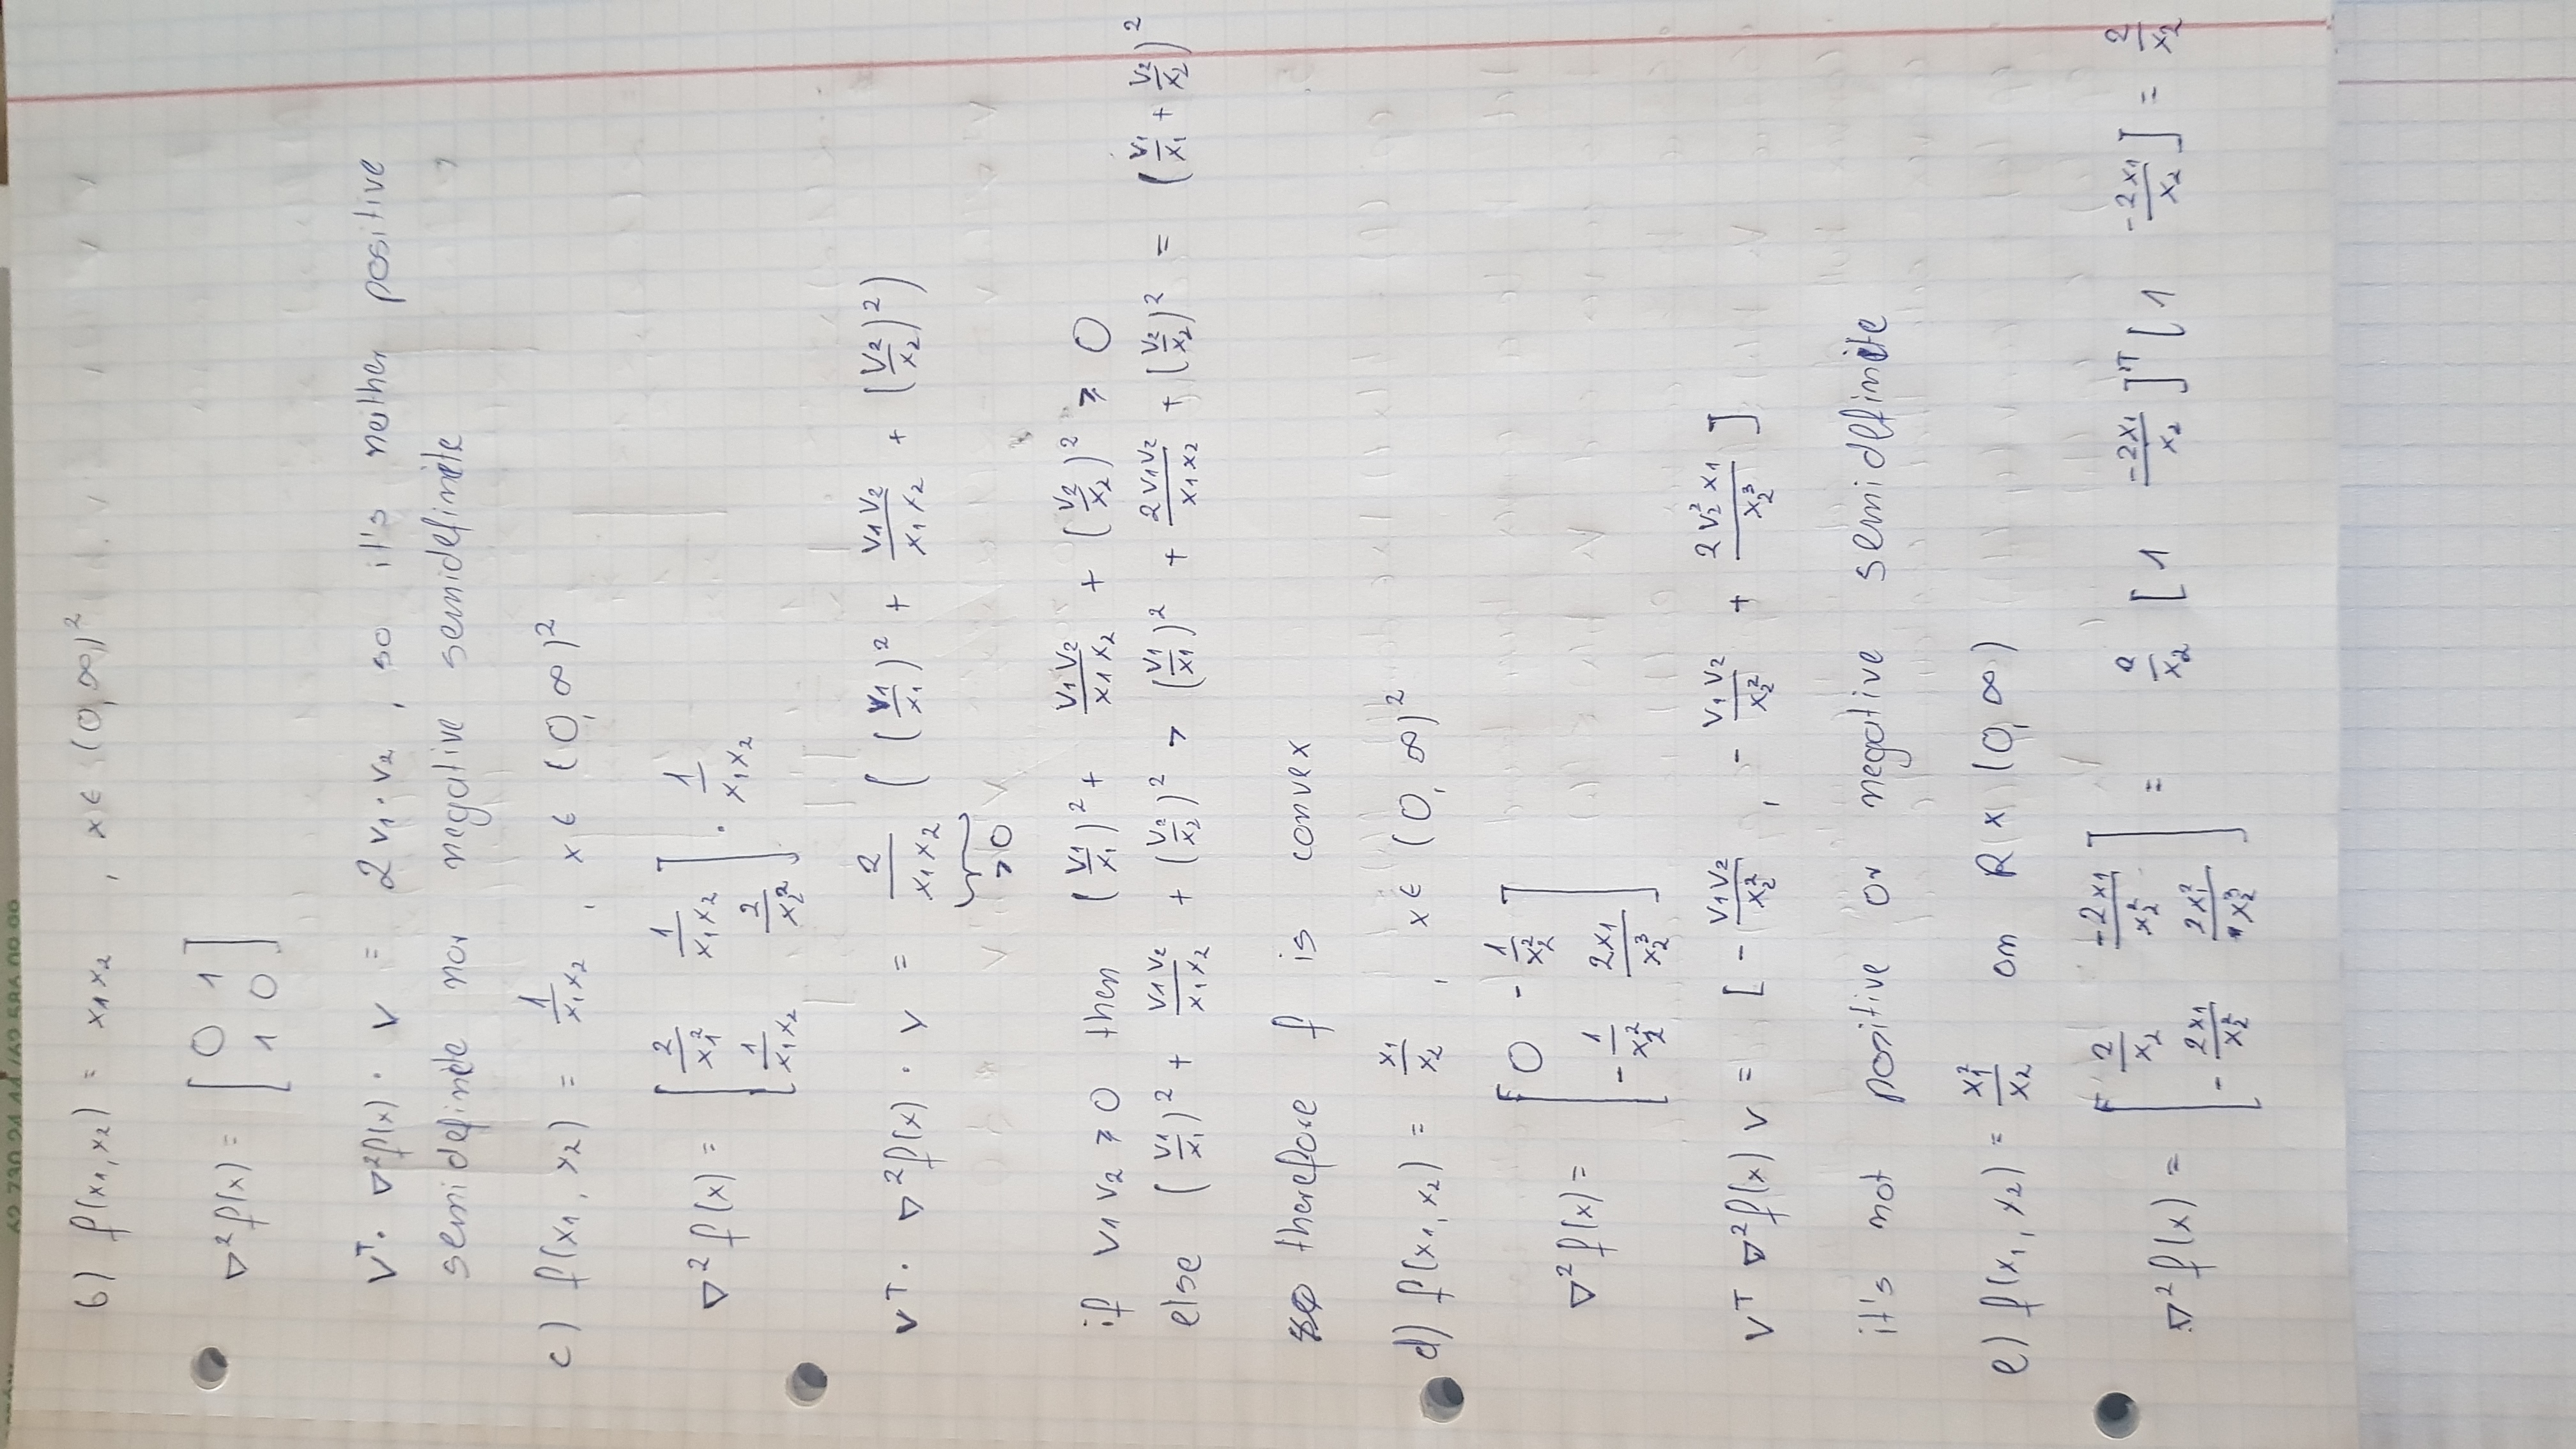 62 730 24 44 /62 586 09 99
b) f(x₁, x₂) = x₁x₂ , x ∈ (0, ∞)²
∇²f(x) = [ 0 1 ; 1 0 ]
vᵀ · ∇²f(x) · v = 2 v₁ · v₂ , so it's neither positive
semidefinite nor negative semidefinite
c) f(x₁, x₂) = 1/(x₁x₂) , x ∈ (0, ∞)²
∇²f(x) = [ 2/x₁² 1/(x₁x₂) ; 1/(x₁x₂) 2/x₂² ] · 1/(x₁x₂)
vᵀ · ∇²f(x) · v = 2/(x₁x₂) ( (v₁/x₁)² + v₁v₂/(x₁x₂) + (v₂/x₂)² )
>0
if v₁v₂ ≥ 0 then (v₁/x₁)² + v₁v₂/(x₁x₂) + (v₂/x₂)² ≥ 0
else (v₁/x₁)² + v₁v₂/(x₁x₂) + (v₂/x₂)² > (v₁/x₁)² + 2v₁v₂/(x₁x₂) + (v₂/x₂)² = (v₁/x₁ + v₂/x₂)²
therefore f is convex
d) f(x₁, x₂) = x₁/x₂ , x ∈ (0, ∞)²
∇²f(x) = [ 0 -1/x₂² ; -1/x₂² 2x₁/x₂³ ]
vᵀ ∇²f(x) v = [ - v₁v₂/x₂² , - v₁v₂/x₂² + 2v₂²x₁/x₂³ ]
it's not positive or negative semidefinite
e) f(x₁, x₂) = x₁²/x₂ on R × (0, ∞)
∇²f(x) = [ 2/x₂ -2x₁/x₂² ; -2x₁/x₂² 2x₁²/x₂³ ] = 2/x₂ [ 1 -2x₁/x₂ ]ᵀ [ 1 -2x₁/x₂ ] = 2/x₂